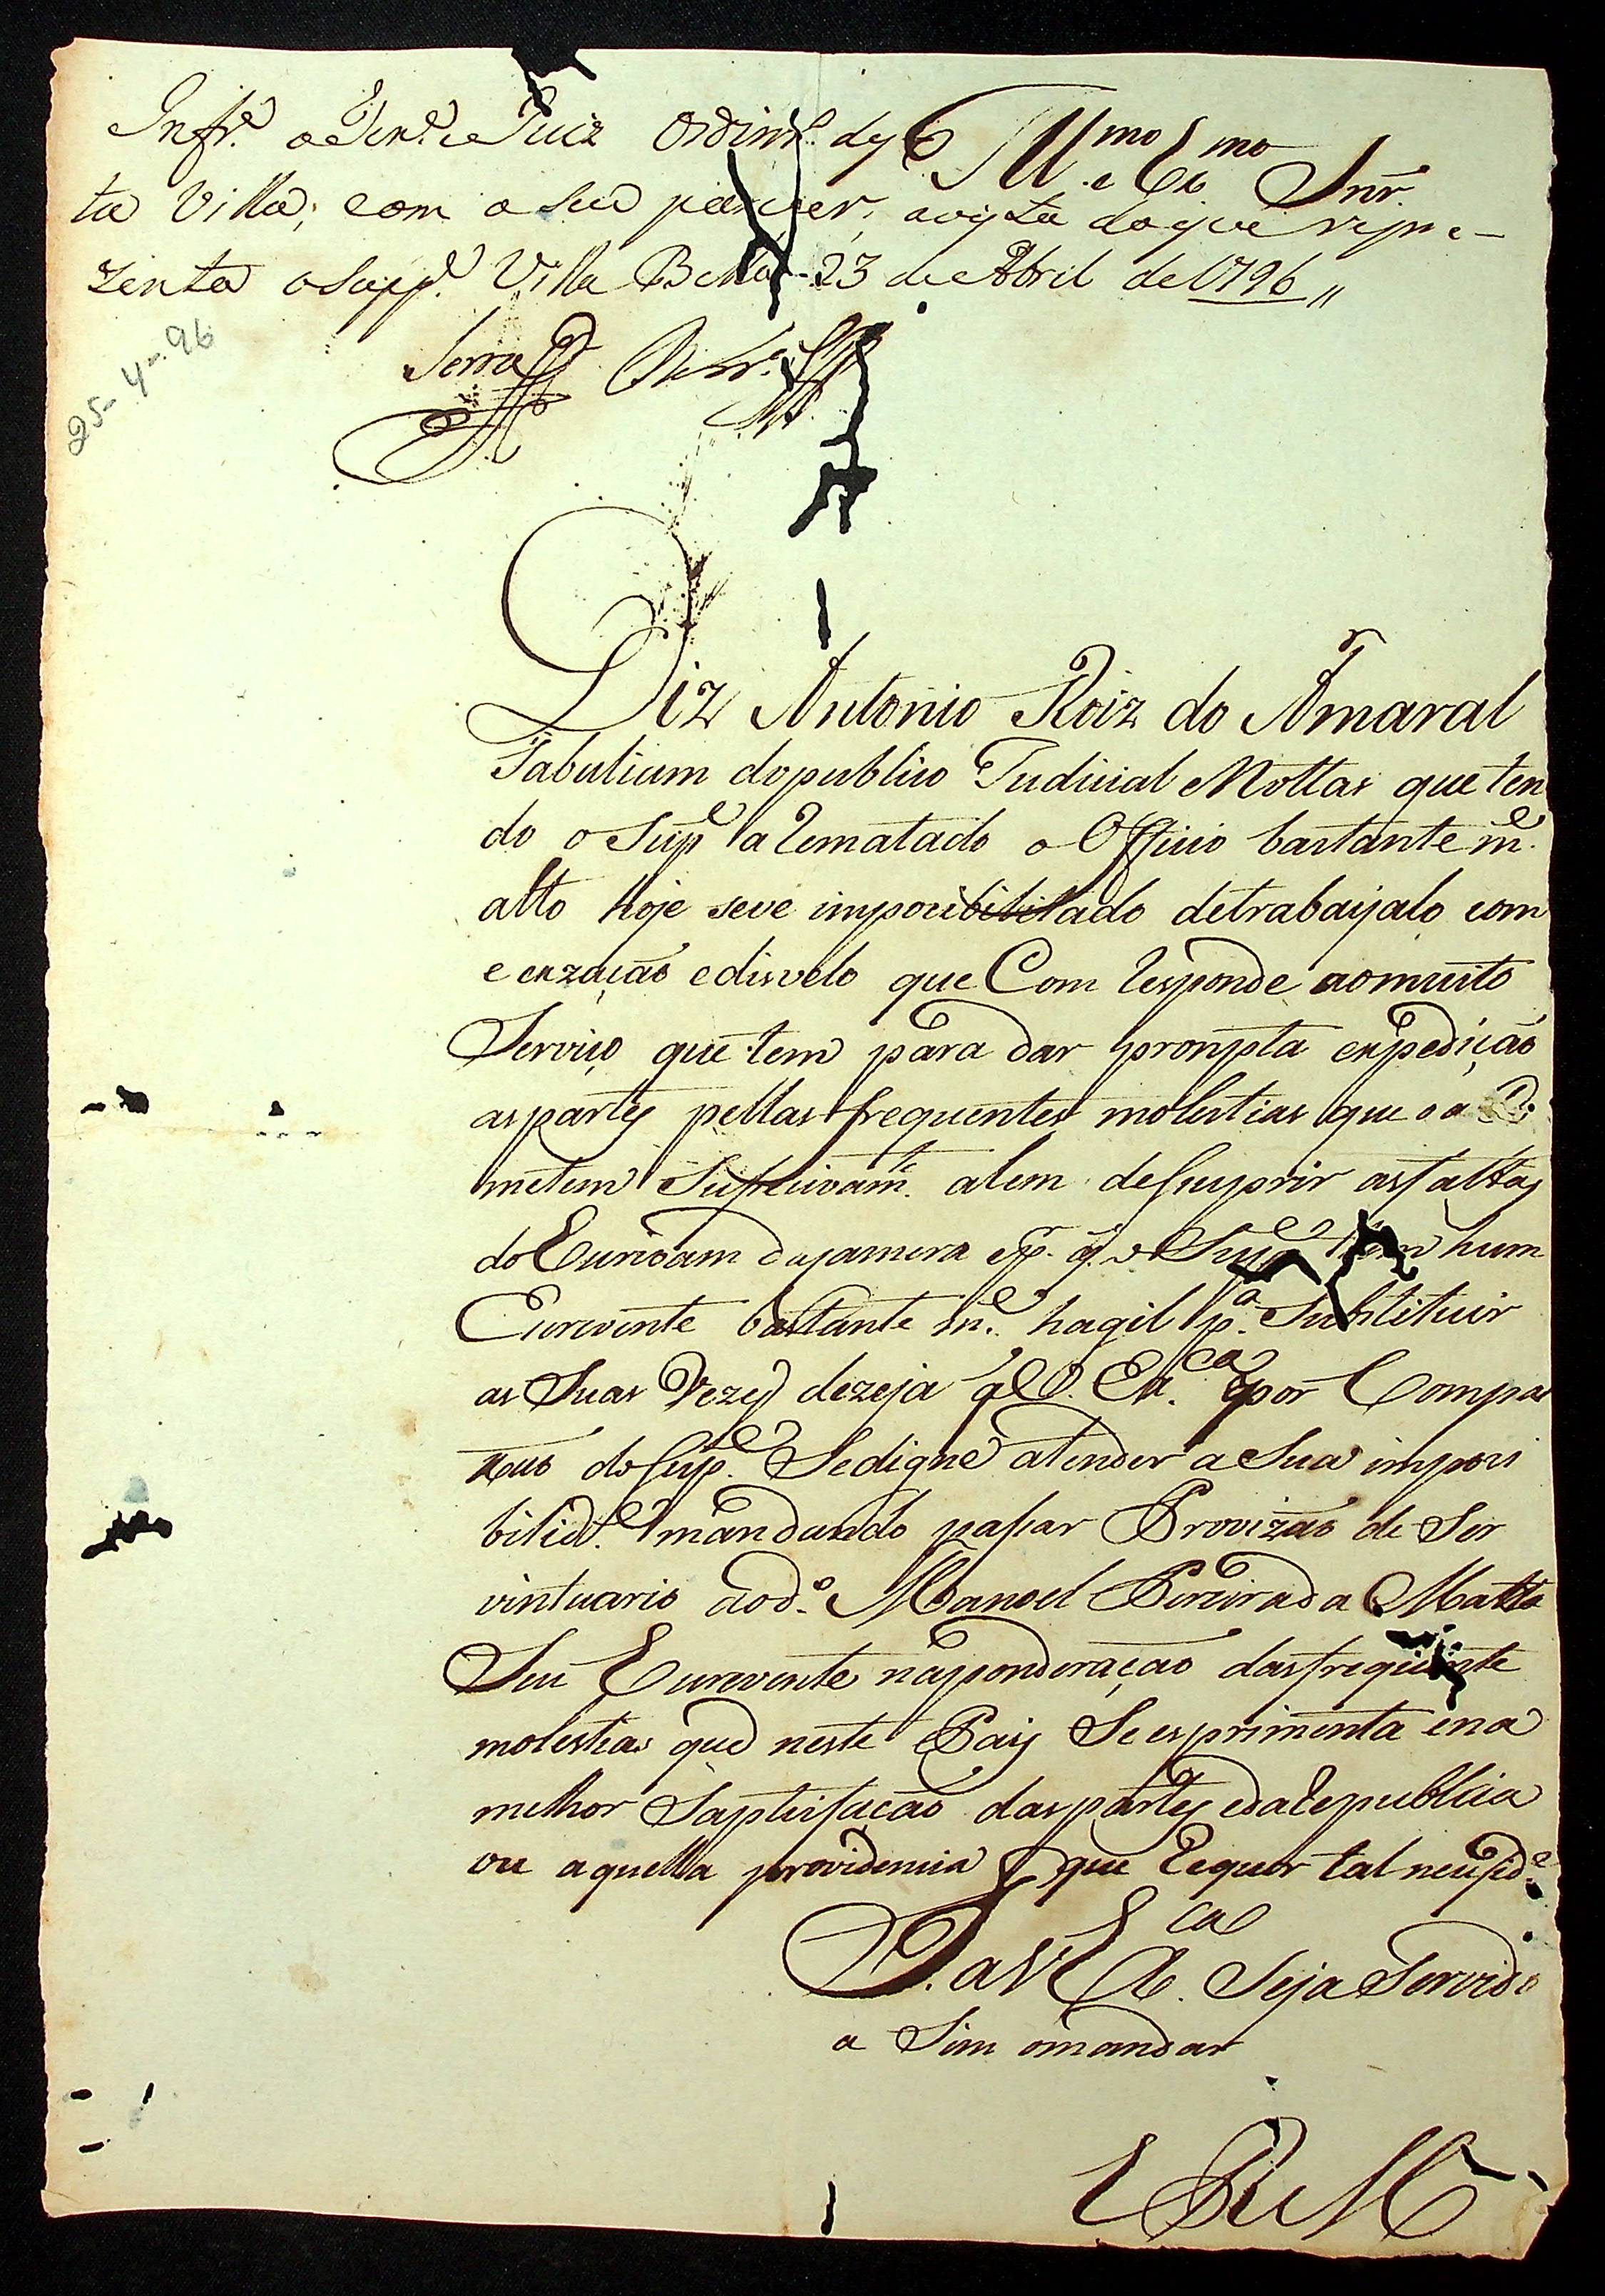 Infr.e o Ten.e e Juiz Ordinr.o des
Illmo e Exmo Snr.
ta Villa; com o seu parecer, avista do que repre-
zenta o Supp.e Villa Bella 23 de Abril de 1796 //
25-4-96
Serra
Diz Antonio Roiz do Amaral
Tabaliam do publico Judicial e Nottas que ten
do o Sup.e a Rematado o Officio bastante m.e
alto hoje seve imposibilitado detrabajalo com
e enzação edisvelo que Com Responde aomuito
Serviço que tem para dar prompta expedição
aspartes pellas frequentes molestias que o a
metem Sucecivam.te alem desuprir asfaltas
do Escrivam dagamera e p. q. o Sup.e tem hum
Escrevente bastante m.e hagil p.a Substituir
as Suas Vezes dezeja q V. Ex.ca por Compai
xaó do Sup.e Sedigne atender a Sua imposi
bilid.e mandando pasar Provizaó de Ser
vintuario aod.o Manoel Pereira da Matta
Seu Escrevente naponderaçaó dasfrequente
molestias que neste Pais Se esprimenta ena
melhor Saptisfaçaó daspartes eda Republica
ou aquella providencia que Requer tal necesid.e
P. a V Ex.ca Seja Servido
a Sim omandar
E R M